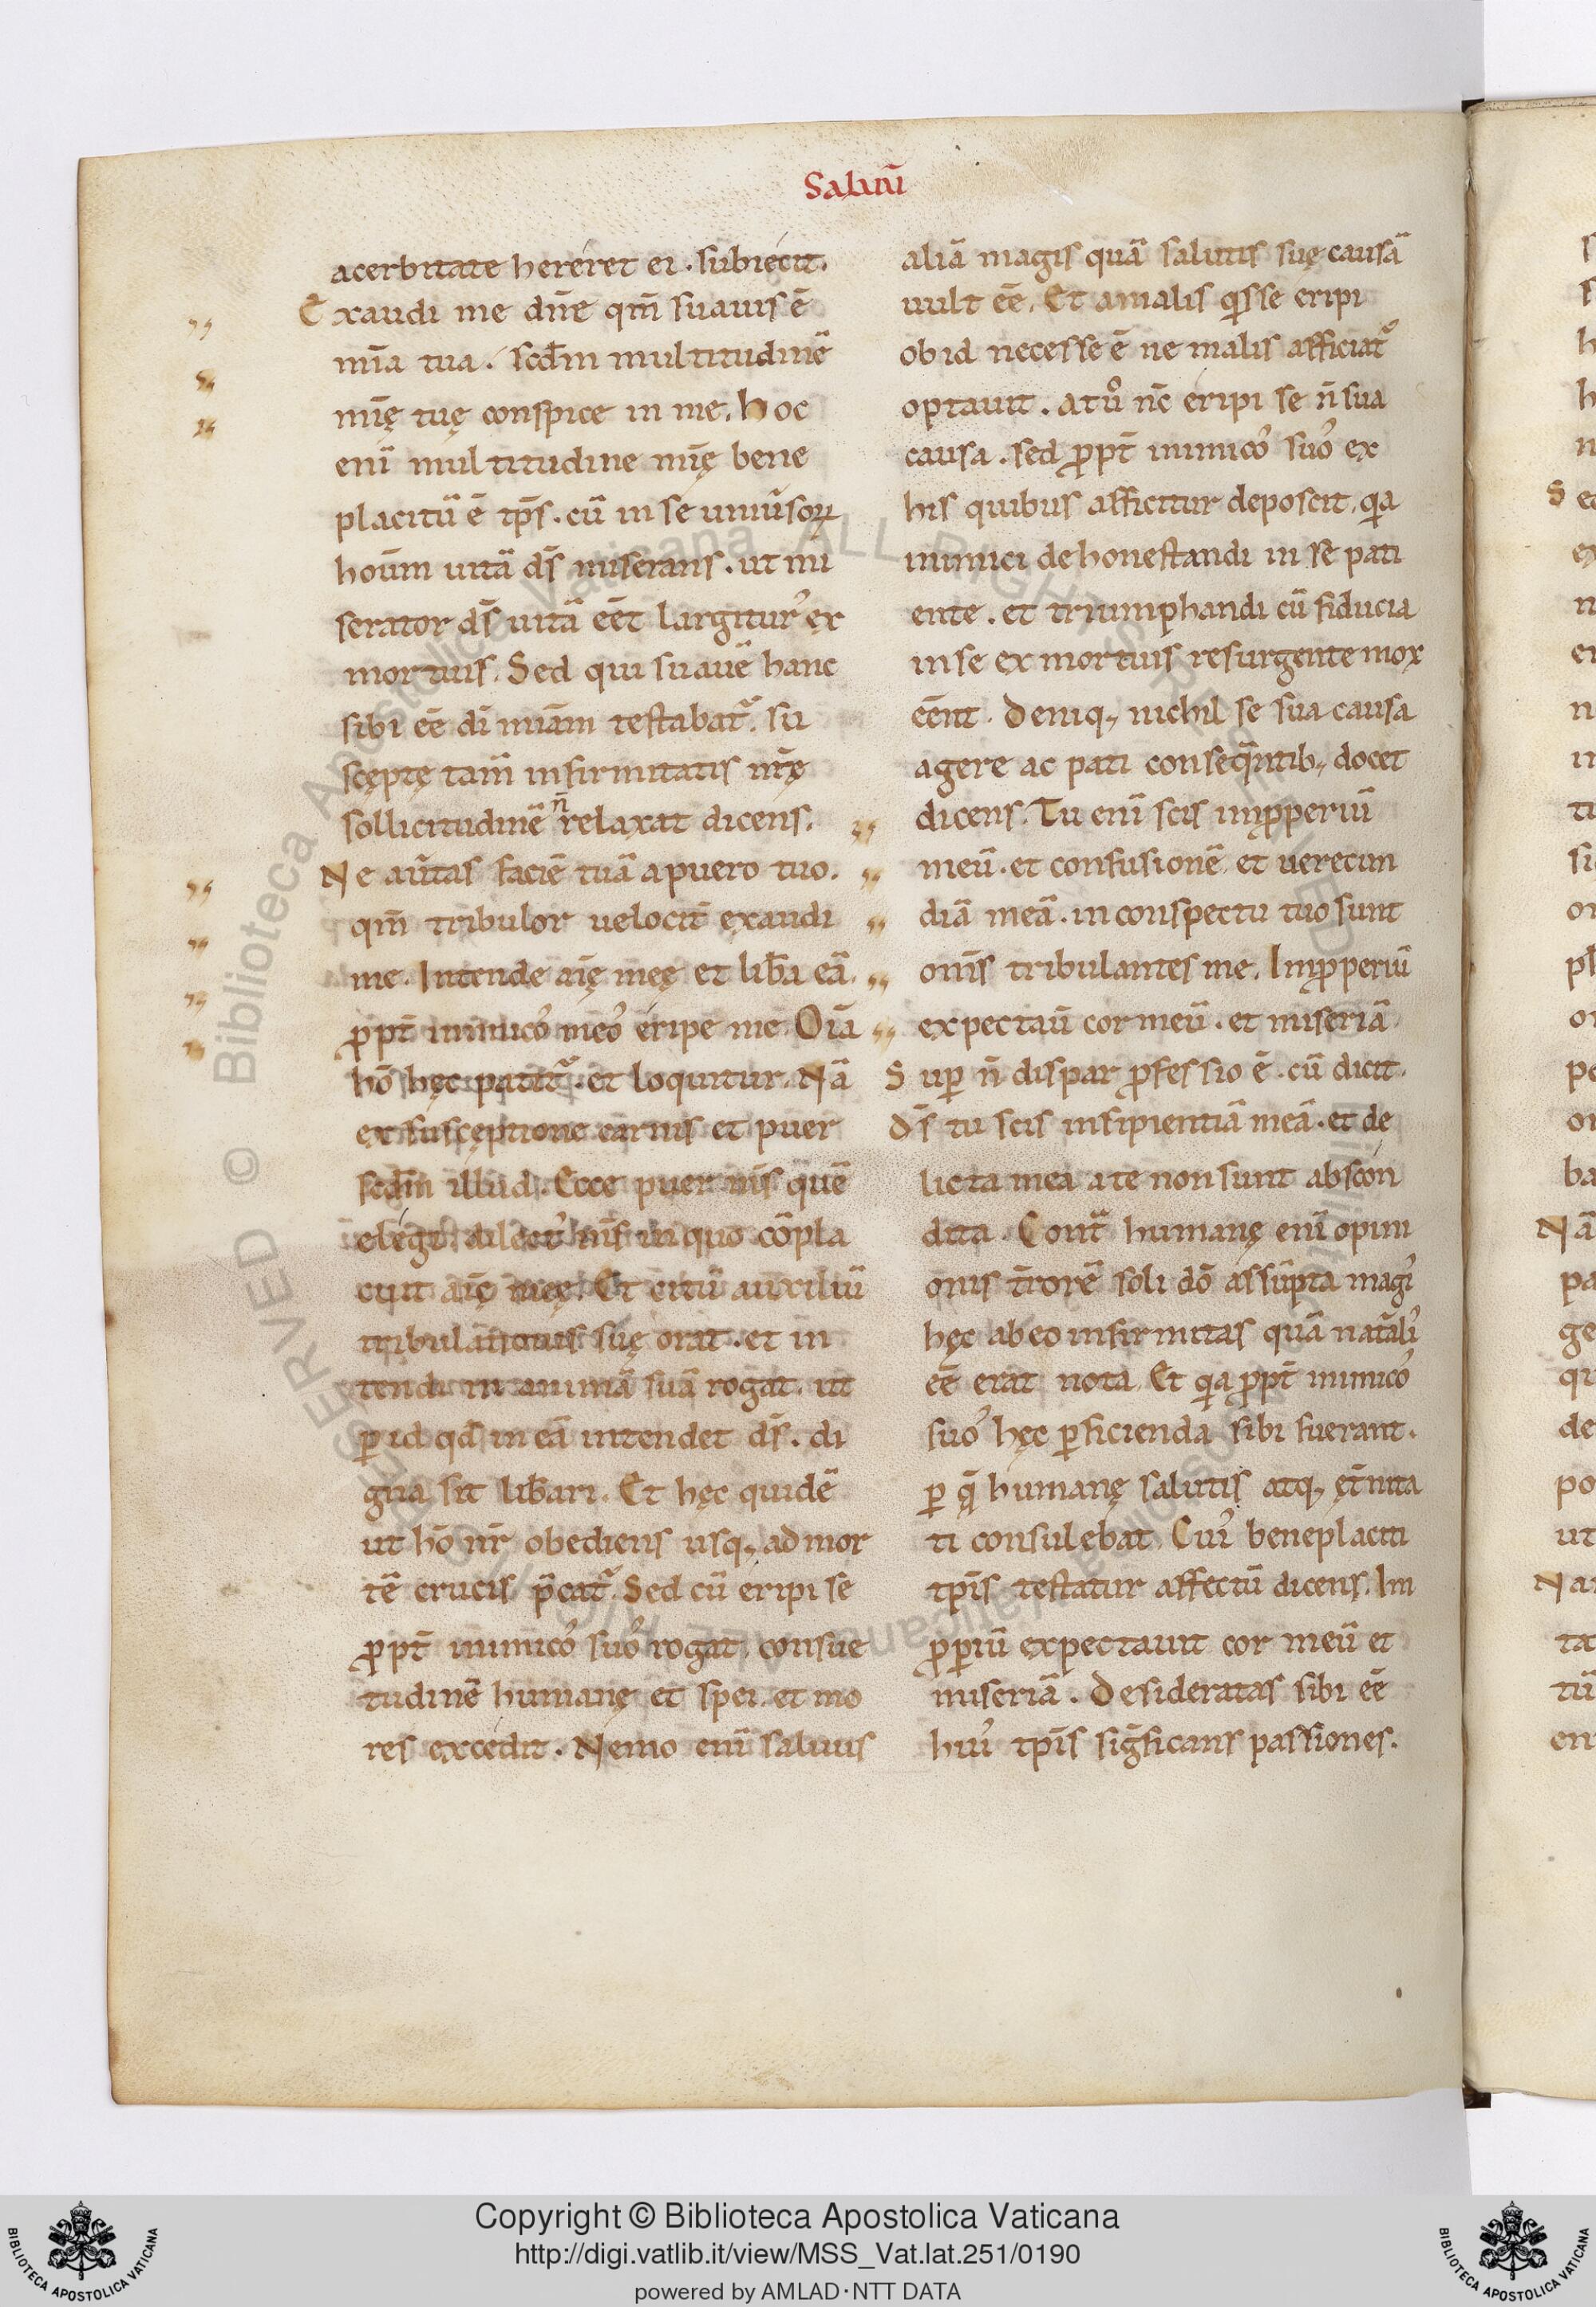 Saluū
acerbitate hereret ei. subiecit.
Exaudi me dn̄e qm̄ suauis ē
mīa tua. scd̄m multitudinē
mīę tuę conspice in me. hoc
enī multitudine mīę bene
placitū ē tp̄s. cū in se uniūsoꝝ
hoūm uitā ds̄ miserans. ut mi
serator ds̄ uitā eēt largitur᾿ ex
mortuis. Sed qui suauē hanc
sibi eē dī miām testabat᷑. su
scęptę tam̄ infirmitatis nr̄ę
sollicitudinē n̄ relaxat dicens.
Ne aūtas faciē tuā a puero tuo.
qm̄ tribulor uelocit̄ exaudi
me. Intende aīę meę et lib̄a eā.
ꝓpt̄ inimico᾿ meo᾿ eripe me. Oīa
hō hęc patit᷑. et loquitur. Nā
ex suscęptione carnis et puer
scd̄m illud. Ecce puer ms̄ quē
elegi dilect᾿ ms̄ in quo cōpla
cuit aīę meę. Et citū auxiliū
tribulationis suę orat. et in
tendi in animā suā rogat. ut
ꝑ id qd̄ in eā intendet ds̄. di
gna sit lib̄ari. Et hęc quidē
ut hō nr̄ obediens usq; ad mor
tē crucis p̄cat᷑. Sed cū eripi se
ꝓpt̄ inimico᾿ suo᾿ rogat. consue
tudinē humanę et spei. et mo
res excedit. Nemo enī saluus
aliā magis quā salutis suę causā
uult eē. Et a malis q̄sse eripi
ob id necesse ē ne malis afficiat᷑
optauit. at u᷎ nc̄ eripi se n̄ sua
causa. sed ꝓpt̄ inimico᾿ suo᾿ ex
his quibus afficitur deposcit. qa
inimici dehonestandi in se pati
ente. et triumphandi cū fiducia
in se ex mortuis resurgente mox
eēnt. Deniq; nichil se sua causa
agere ac pati conseq̄ntib; docet
dicens. Tu enī scis inꝓperiū
meū. et confusionē et uerecun
diā meā. in conspectu tuo sunt
om̄s tribulantes me. Inꝓperiū
expectaū cor meū. et miseriā.
Suꝑ n̄ dispar ꝓfessio ē. cū dicit.
Ds̄ tu scis insipientiā meā. et de
licta mea a te non sunt abscon
dita. Contᵃ humanę enī opini
onis t̄rorē soli dō assūpta magi᾿
hęc ab eo infirmitas quā natāli᾿
eē erat nota. Et qa ꝓpt̄ inimico᾿
suo᾿ hęc ꝑficienda sibi fuerant.
ꝑ q̄ humanę salutis atq; ęt̄nita
ti consulebat. Cui᾿ beneplaciti
tp̄is testatur affectū dicens. Im
ꝓꝑiū expectauit cor meū et
miseriā. Desideratas sibi eē
hui᾿ tp̄is sig̉ficans passiones.
Copyright © Biblioteca Apostolica Vaticana
http://digi.vatlib.it/view/MSS_Vat.lat.251/0190
powered by AMLAD · NTT DATA